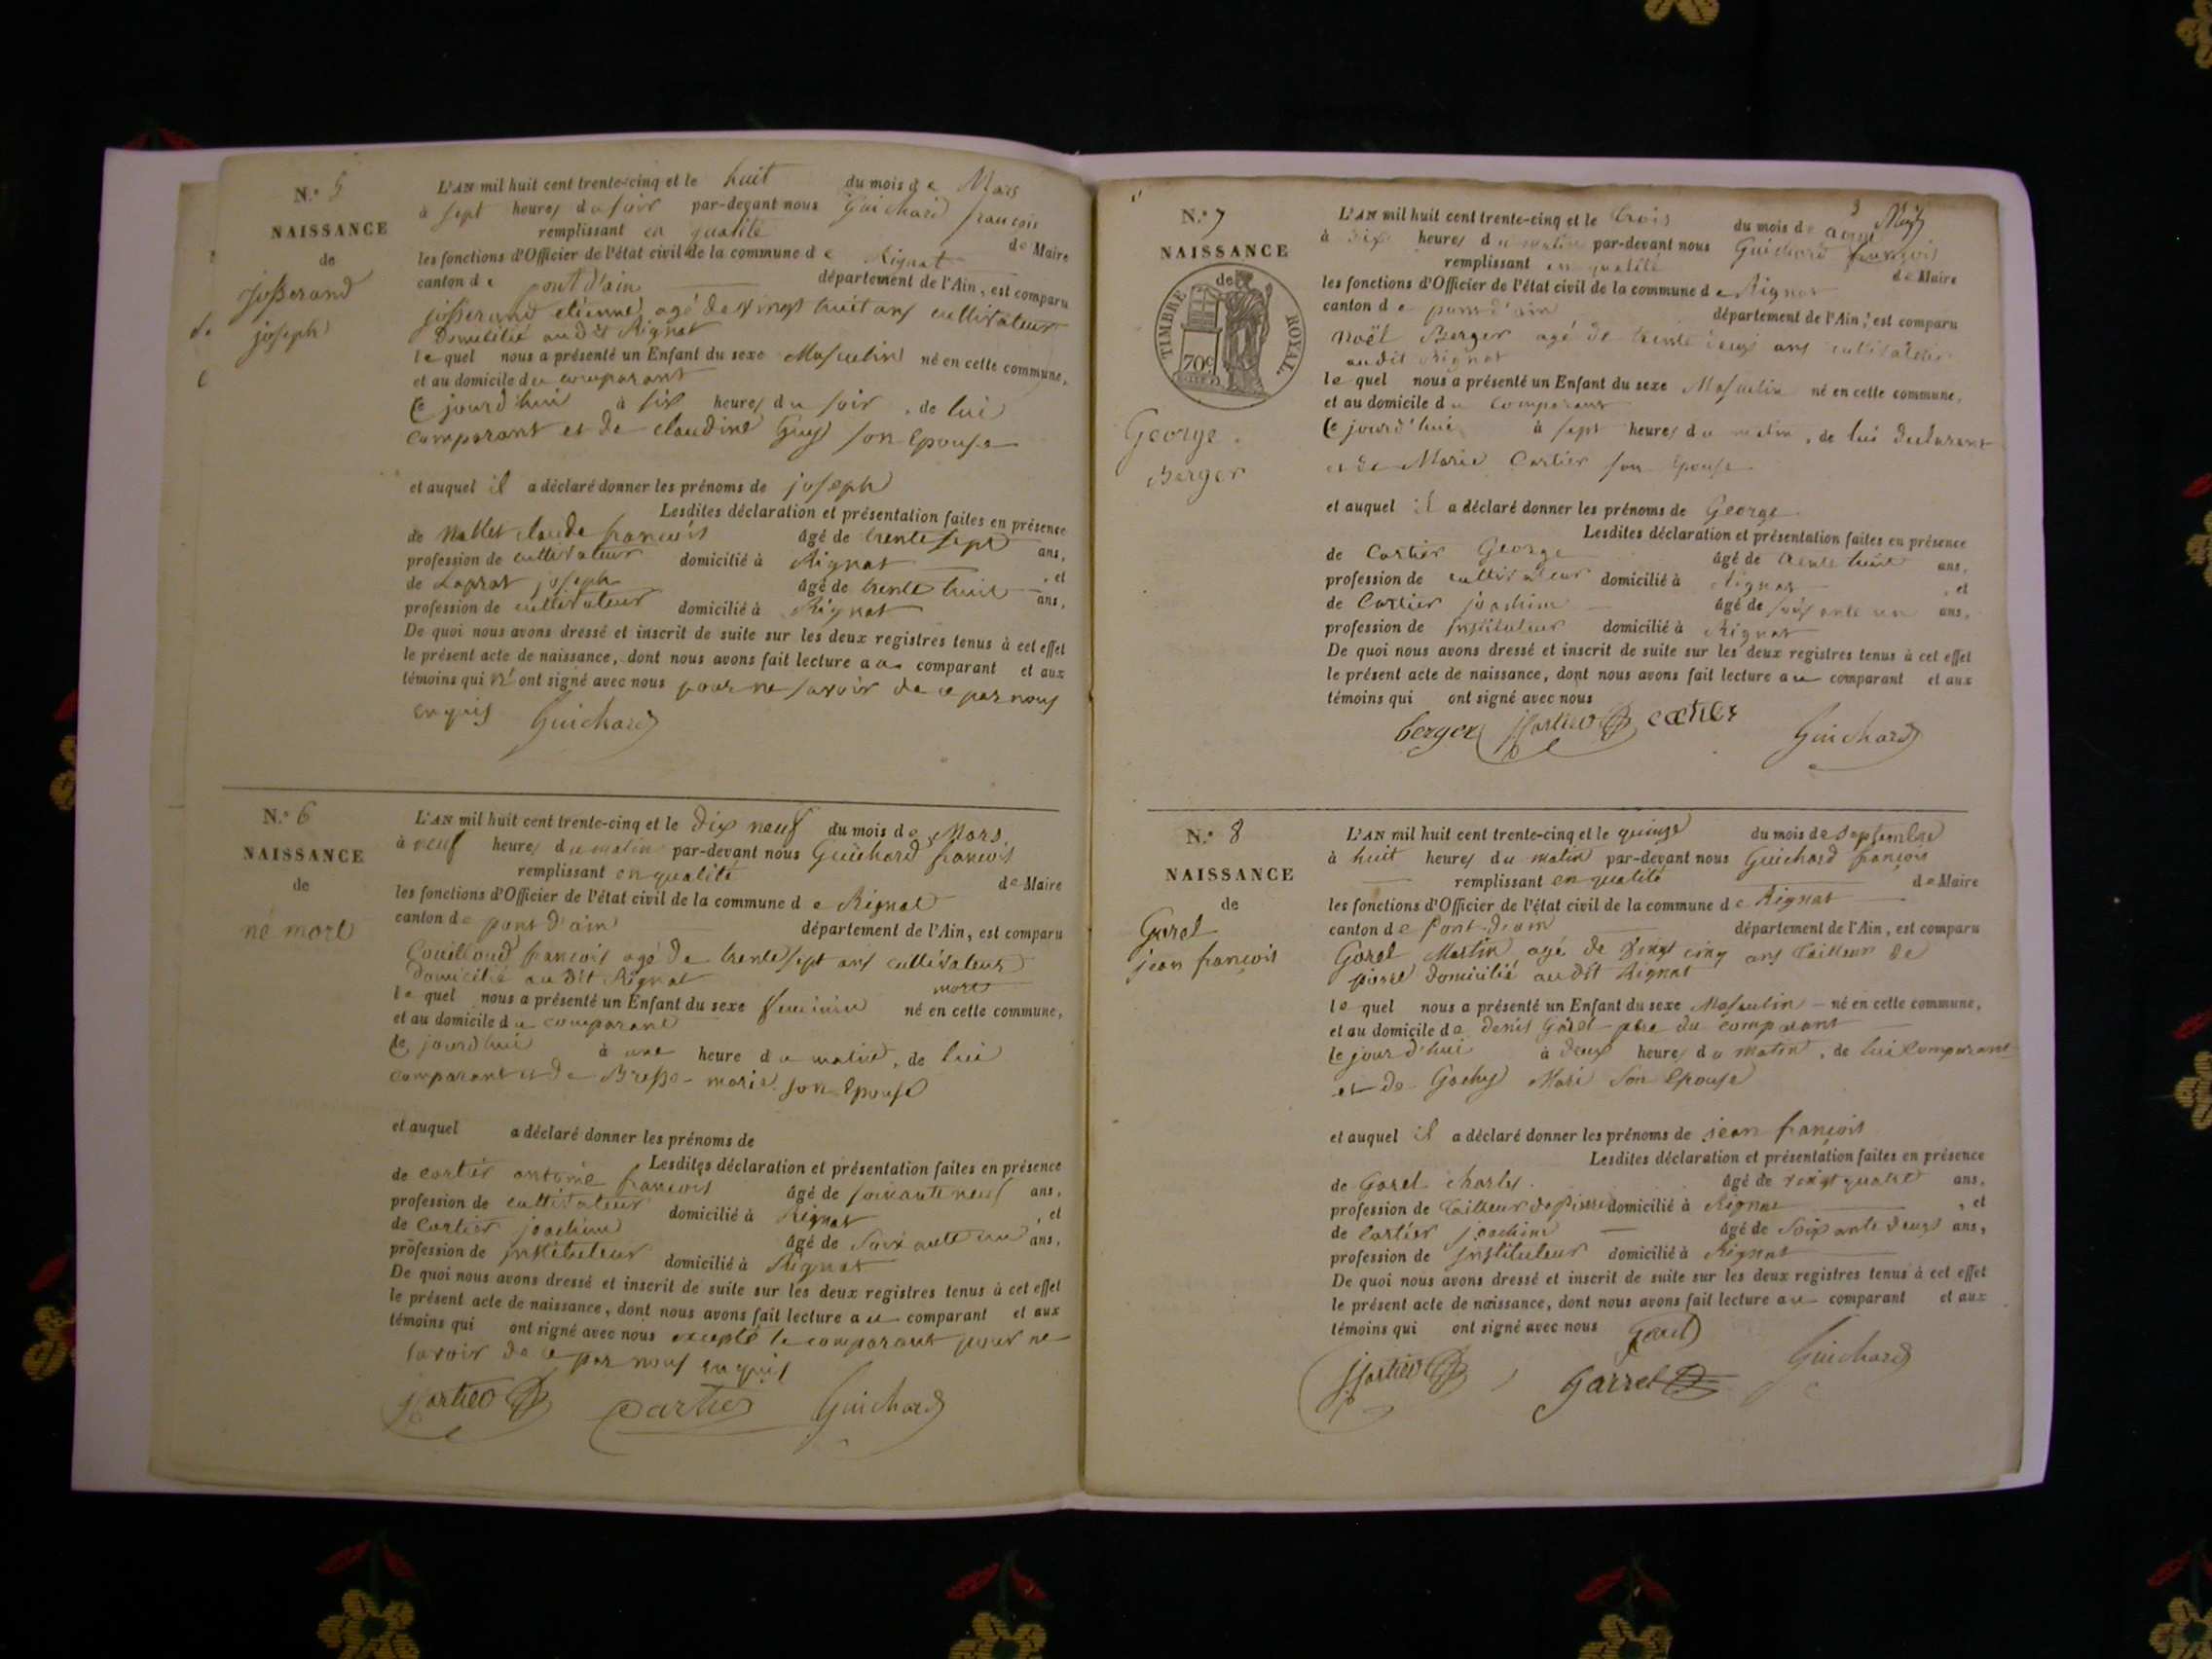 N.° 5
NAISSANCE
de
Josserand
joseph
L'AN mil huit cent trente-cinq et le huit du mois de Mars
à sept heures du soir par-devant nous Guichard francois
remplissant en qualité de Maire
les fonctions d'Officier de l'état civil de la commune de Rignat
canton de pont d'ain département de l'Ain, est comparu
josserand etienne agé de vingt huit ans cultivateur
domicilié audit Rignat
lequel nous a présenté un Enfant du sexe Masculin né en cette commune,
et au domicile du comparant
ce jourd'hui à six heures du soir, de lui
comparant et de claudine Guy son Epouse
et auquel il a déclaré donner les prénoms de joseph
Lesdites déclaration et présentation faites en présence
de claude francois âgé de trente sept ans,
profession de cultivateur domicilié à Rignat, et
de Laprat joseph âgé de trente huit ans,
profession de cultivateur domicilié à Rignat
De quoi nous avons dressé et inscrit de suite sur les deux registres tenus à cet effet
le présent acte de naissance, dont nous avons fait lecture au comparant et aux
témoins qui n'ont signé avec nous pour ne savoir de ce par nous
enquis Guichard
N.° 6
NAISSANCE
de
né mort
L'AN mil huit cent trente-cinq et le dix neuf du mois de Mars
à neuf heures du matin par-devant nous Guichard francois
remplissant en qualité de Maire
les fonctions d'Officier de l'état civil de la commune de Rignat
canton de pont d'ain département de l'Ain, est comparu
Couilloud francois agé de trente sept ans cultivateur
domicilié au dit Rignat
mort
lequel nous a présenté un Enfant du sexe feminin né en cette commune,
et au domicile du comparant
ce jourd'hui à une heure du matin, de lui
comparant et de Bresse marie son Epouse
et auquel a déclaré donner les prénoms de
Lesdites déclaration et présentation faites en présence
de cartier antoine francois âgé de soixante neuf ans,
profession de cultivateur domicilié à Rignat, et
de Cartier joachim âgé de soixante un ans,
profession de instituteur domicilié à Rignat
De quoi nous avons dressé et inscrit de suite sur les deux registres tenus à cet effet
le présent acte de naissance, dont nous avons fait lecture au comparant et aux
témoins qui ont signé avec nous excepté le comparant pour ne
savoir de ce par nous enquis
jjcartier cartier Guichard
N.° 7
NAISSANCE
de
TIMBRE ROYAL.
70c
George
Berger
3
L'AN mil huit cent trente-cinq et le trois du mois de Mai
à dix heures du matin par-devant nous Guichard francois
remplissant en qualité de Maire
les fonctions d'Officier de l'état civil de la commune de Rignat
canton de pont d'ain département de l'Ain, est comparu
Noël Berger agé de trente deux ans cultivateur
audit Rignat
lequel nous a présenté un Enfant du sexe Masculin né en cette commune,
et au domicile du comparant
ce jourd'hui à sept heures du matin, de lui declarant
et de Marie Cartier son Epouse
et auquel il a déclaré donner les prénoms de George
Lesdites déclaration et présentation faites en présence
de Cartier George âgé de trente huit ans,
profession de cultivateur domicilié à Rignat, et
de Cartier joachim âgé de soixante un ans,
profession de instituteur domicilié à Rignat
De quoi nous avons dressé et inscrit de suite sur les deux registres tenus à cet effet
le présent acte de naissance, dont nous avons fait lecture au comparant et aux
témoins qui ont signé avec nous
berger jjcartier Guichard
N.° 8
NAISSANCE
de
Gorel
jean françois
L'AN mil huit cent trente-cinq et le quinze du mois de septembre
à huit heures du matin par-devant nous Guichard françois
remplissant en qualité de Maire
les fonctions d'Officier de l'état civil de la commune de Rignat
canton de Pont-d'ain département de l'Ain, est comparu
Gorel Martin agé de vingt cinq ans tailleur de
pierre domicilié au dit Rignat
lequel nous a présenté un Enfant du sexe Masculin né en cette commune,
et au domicile de denis Gorel père du comparant
ce jour d'hui à deux heures du matin, de lui comparant
et de Gachy Marie son Epouse
et auquel il a déclaré donner les prénoms de jean françois
Lesdites déclaration et présentation faites en présence
de Gorel charles âgé de vingt quatre ans,
profession de tailleur de pierre domicilié à Rignat, et
de Cartier joachim âgé de soixante deux ans,
profession de instituteur domicilié à Rignat
De quoi nous avons dressé et inscrit de suite sur les deux registres tenus à cet effet
le présent acte de naissance, dont nous avons fait lecture au comparant et aux
témoins qui ont signé avec nous Gorel
jjcartier Garrel Guichard